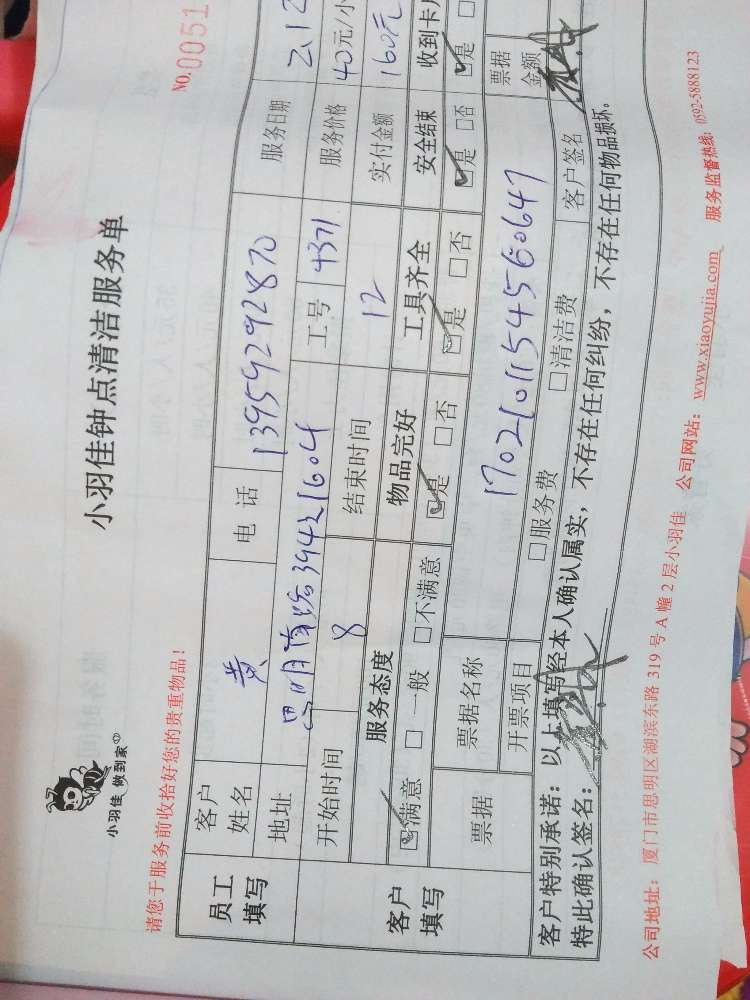 小羽佳 做到家
小羽佳钟点清洁服务单
NO.0051
请您于服务前收拾好您的贵重物品！
员工填写 客户姓名 黄 电话 13959292870 服务日期 2.12
地址 思明南路394之1604 服务价格 40元/小
开始时间 8 结束时间 12 工号 4371 实付金额 160元
客户填写 服务态度 物品完好 工具齐全 安全结束 收到卡片
☑满意 □一般 □不满意 ☑是 □否 ☑是 □否 ☑是 □否 ☑是 □
票据 票据名称 170210115454560647 票据金额
开票项目 □服务费 □清洁费 客户签名
客户特别承诺：以上填写经本人确认属实，不存在任何纠纷，不存在任何物品损坏。
特此确认签名：
公司地址：厦门市思明区湖滨东路 319 号 A 幢 2 层小羽佳 公司网站：www.xiaoyujia.com 服务监督热线：0592-5888123